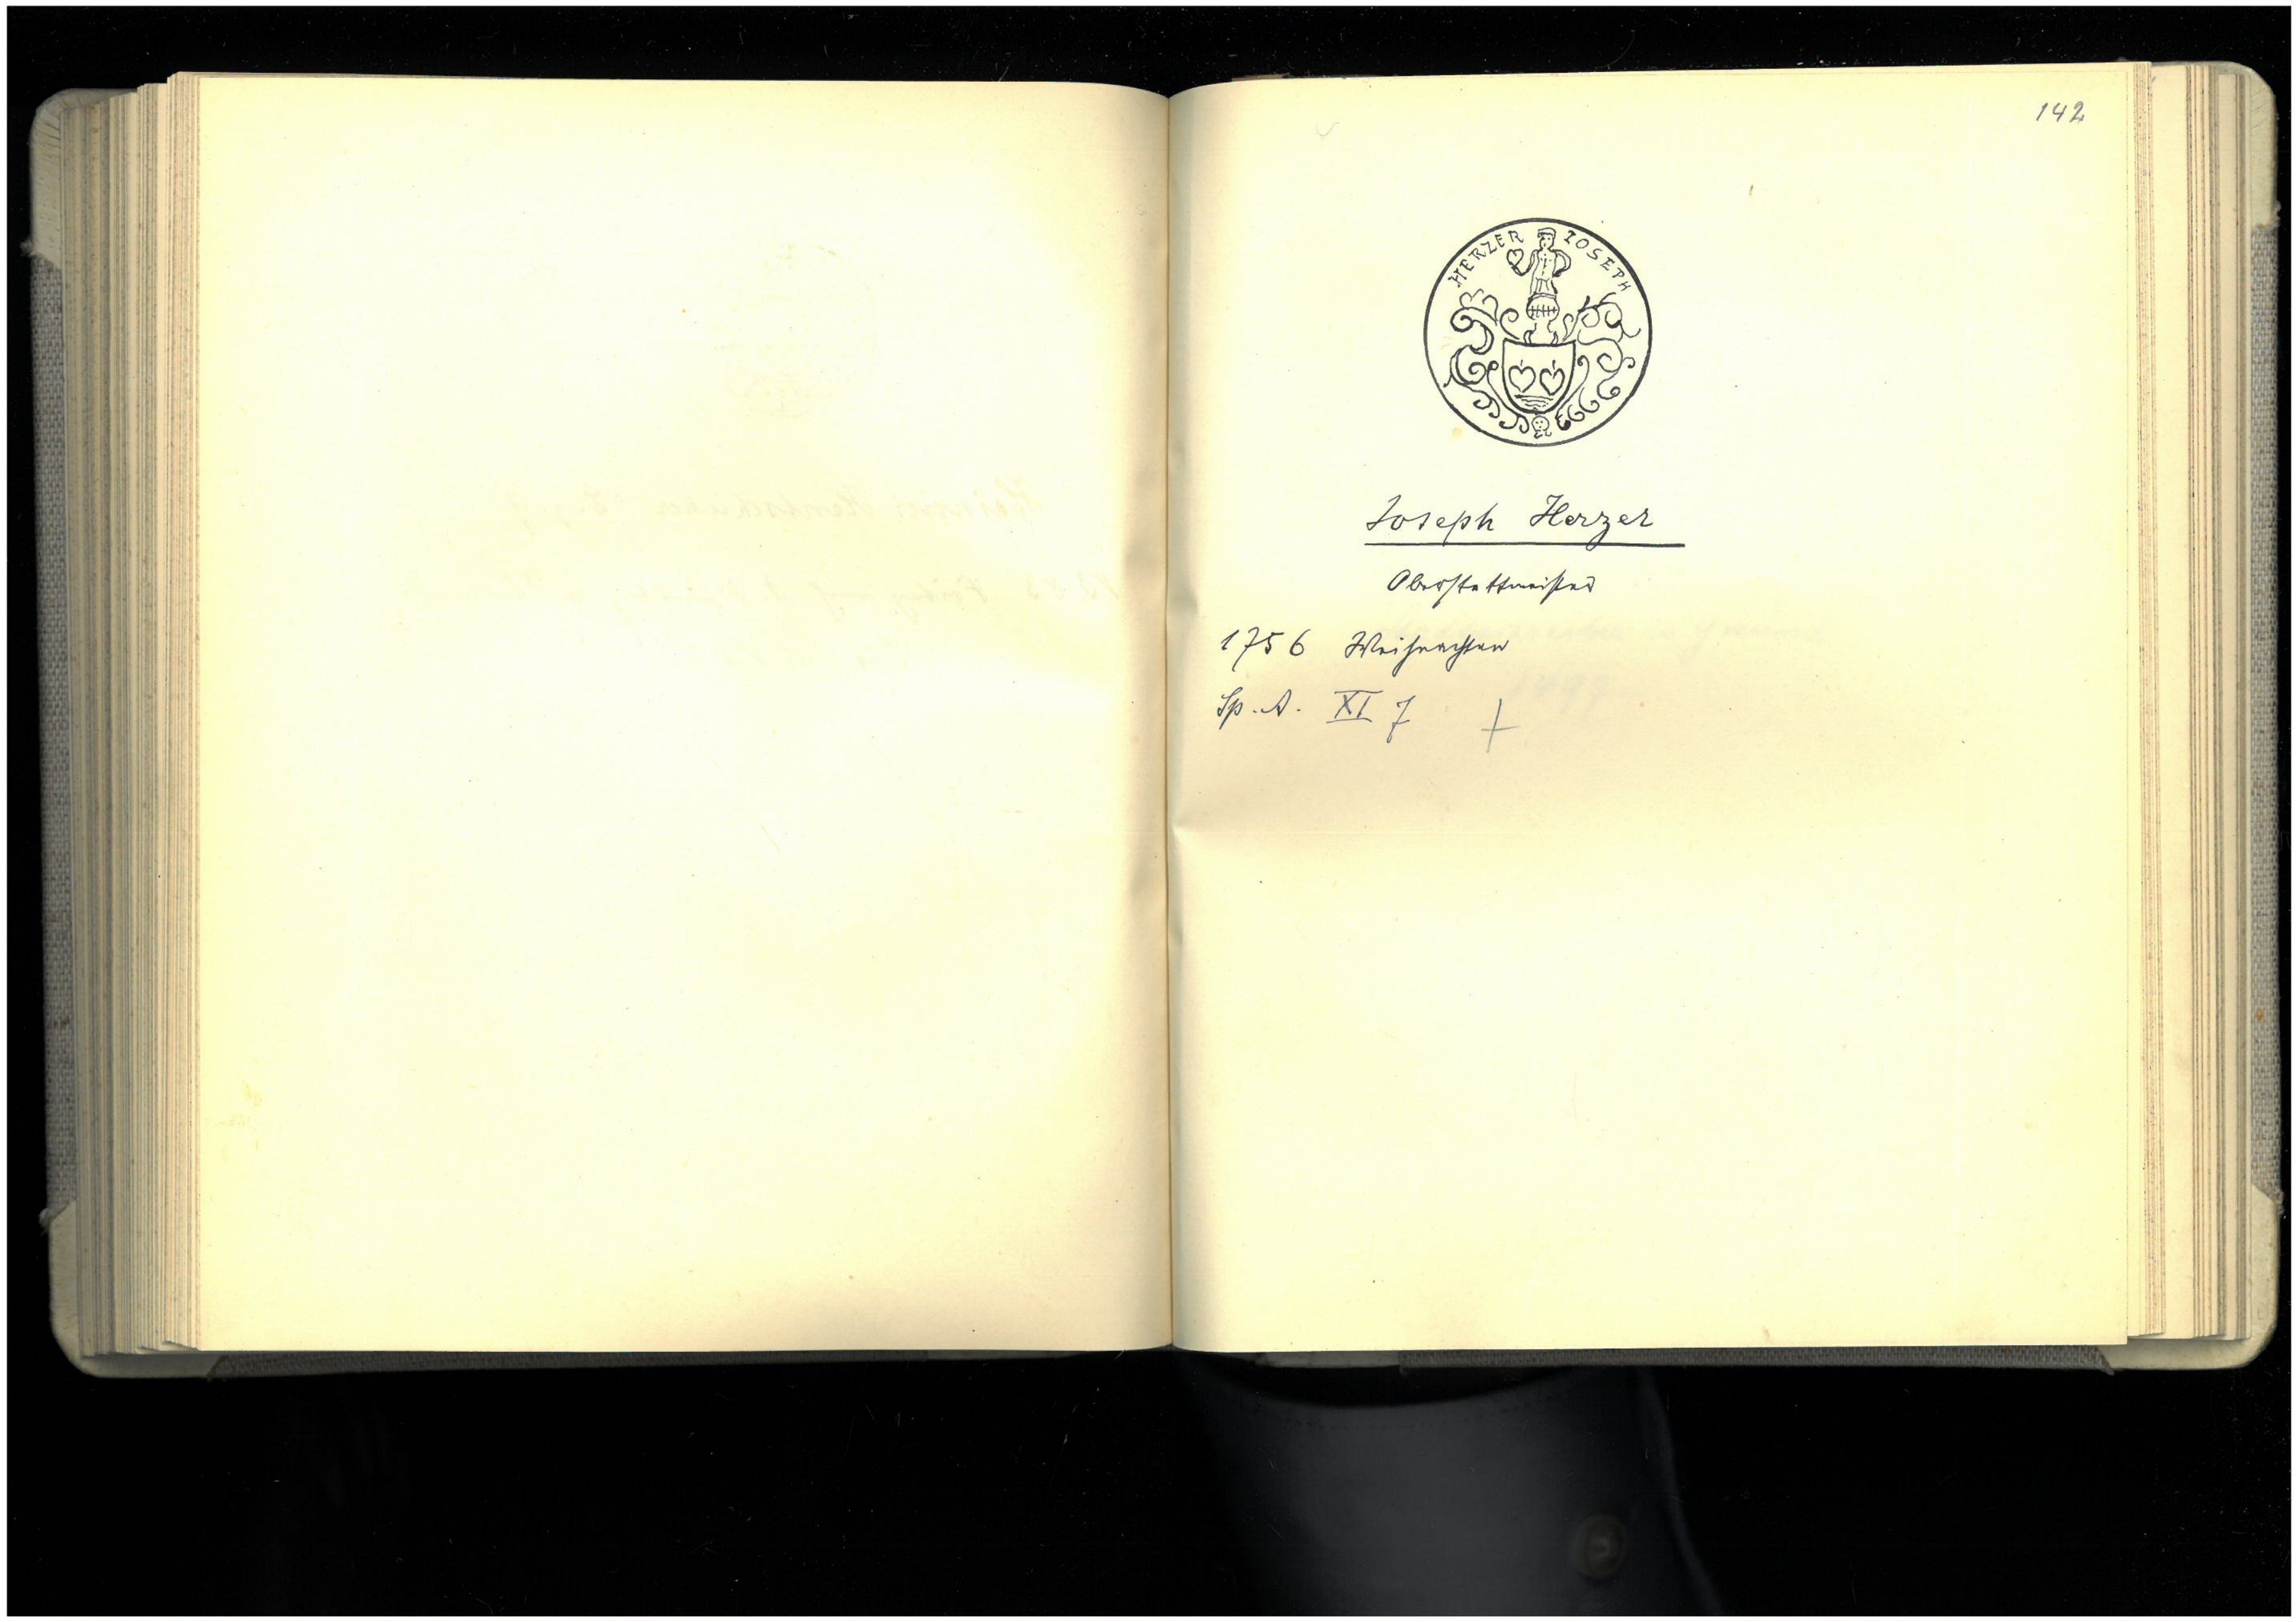 142
HERZER IOSEPH
Joseph Herzer
Oberstettmeister
1756 Weihnachten
Sp. A. XI 7